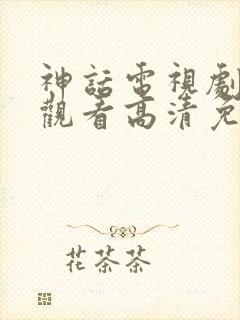 神話電視劇
觀看高清免
花茶茶